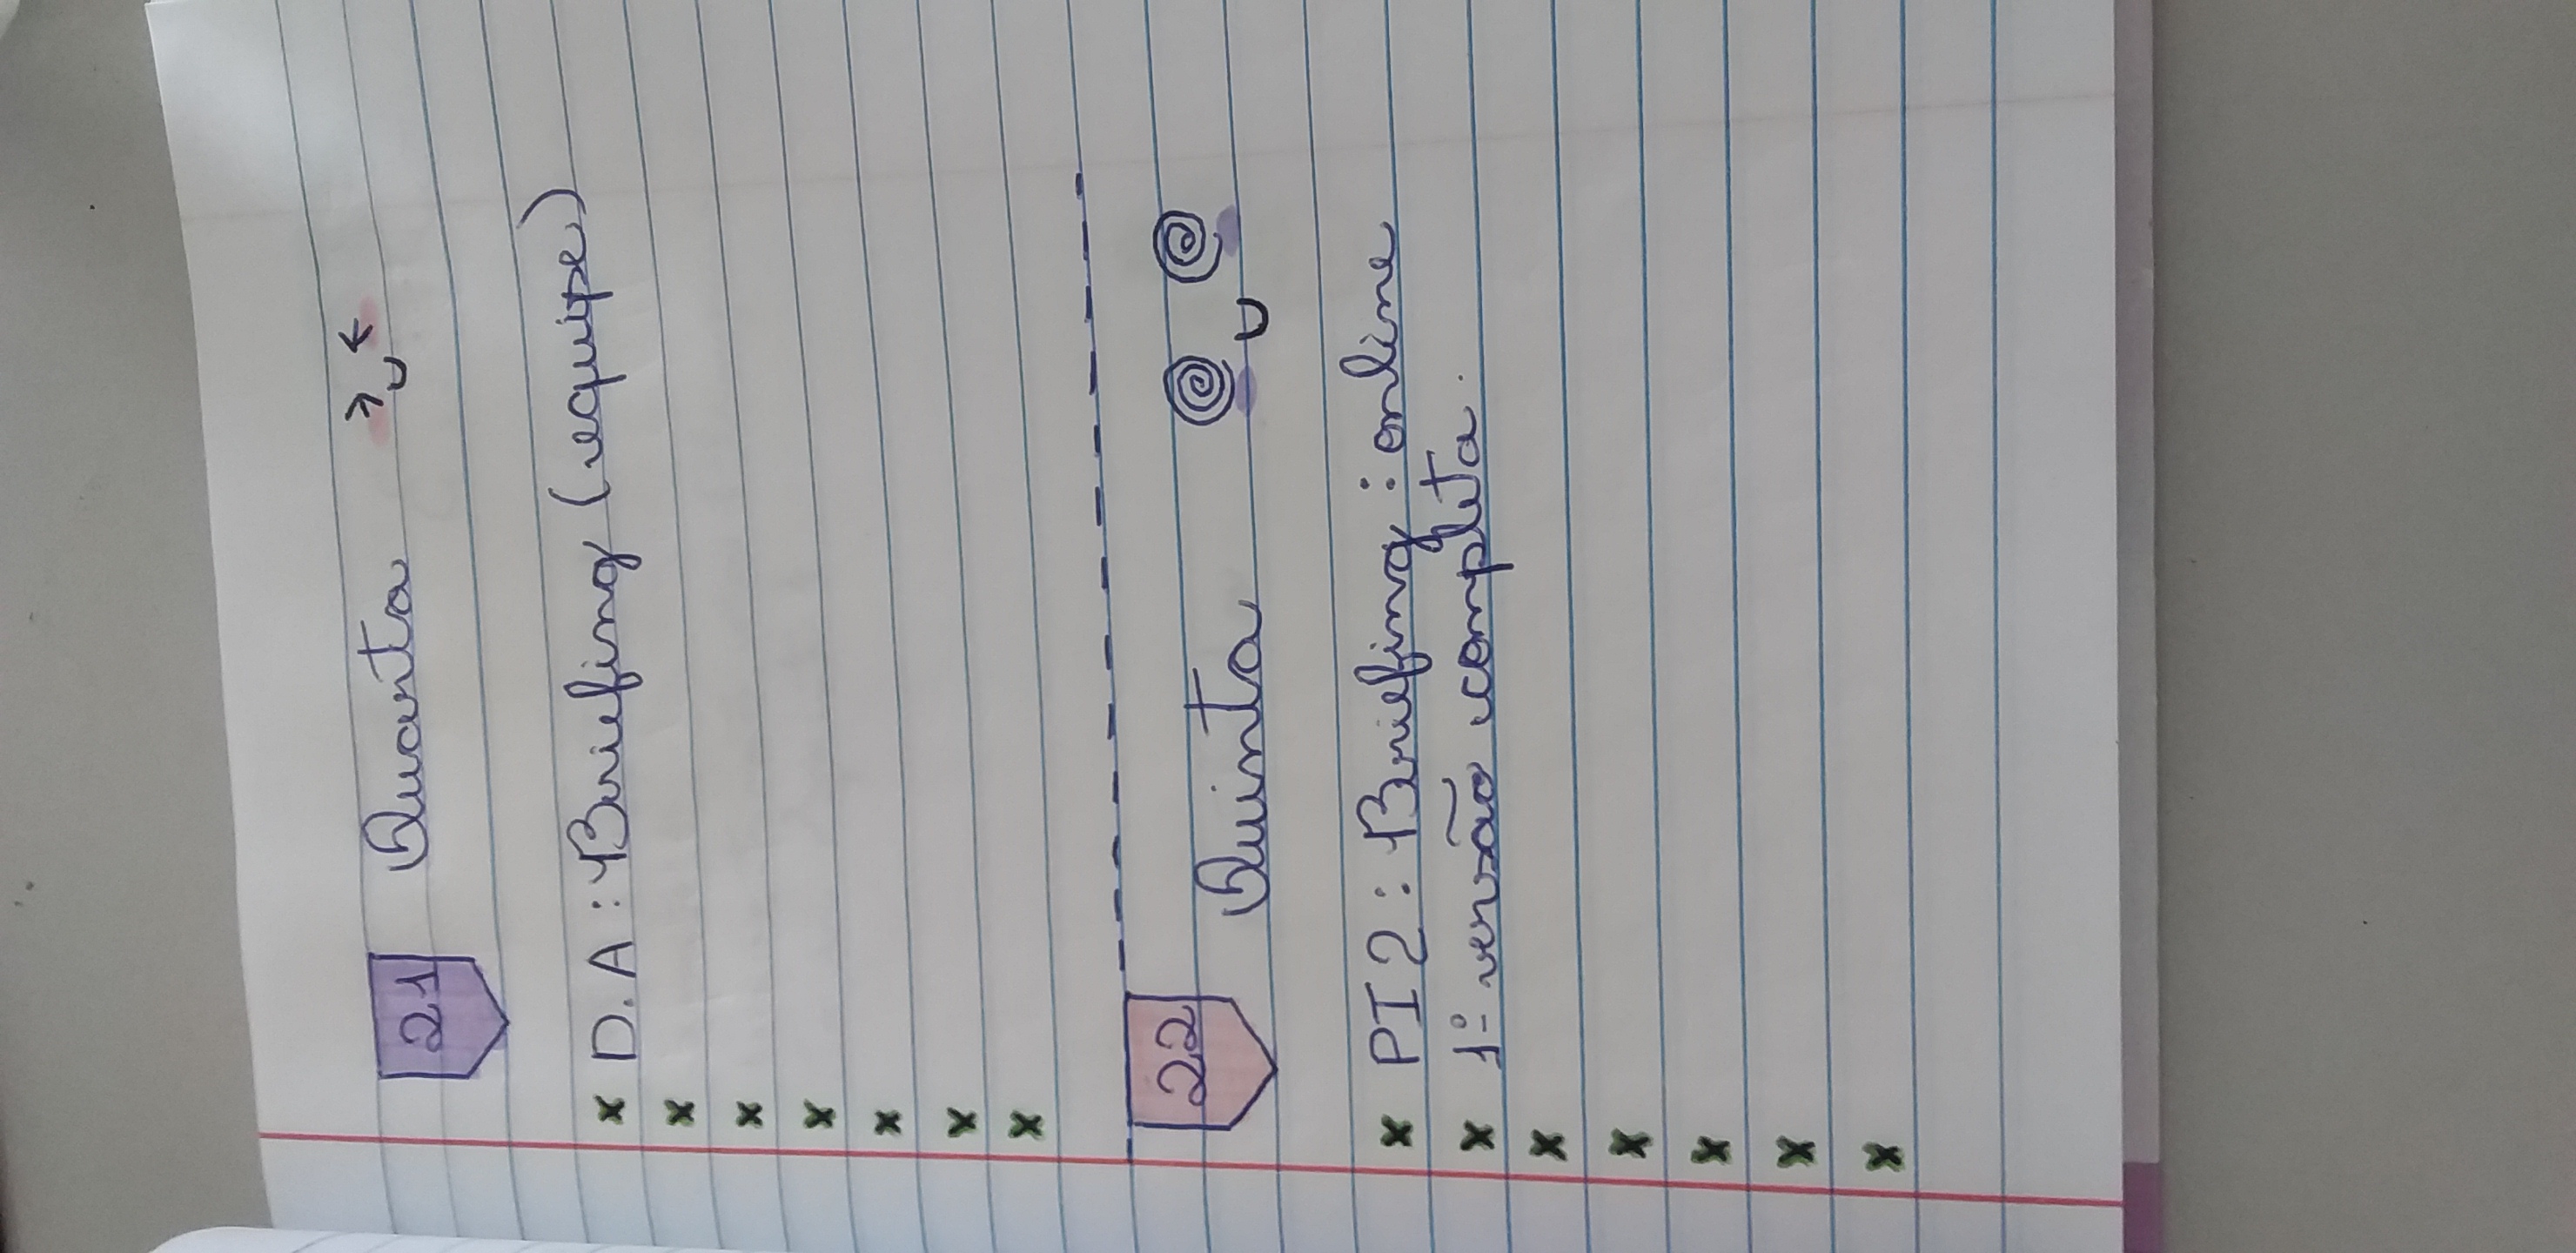 21 Quarta
x D.A : Briefing (equipe)
x
x
x
x
x
x
22
Quinta
x PI2 : Briefing : online
x 1º versão completa.
x
x
x
x
x